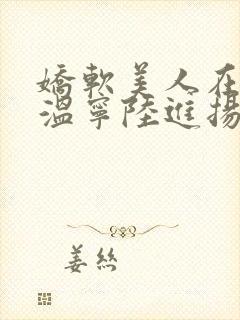 嬌軟美人在
溫寧陸進揚
姜絲